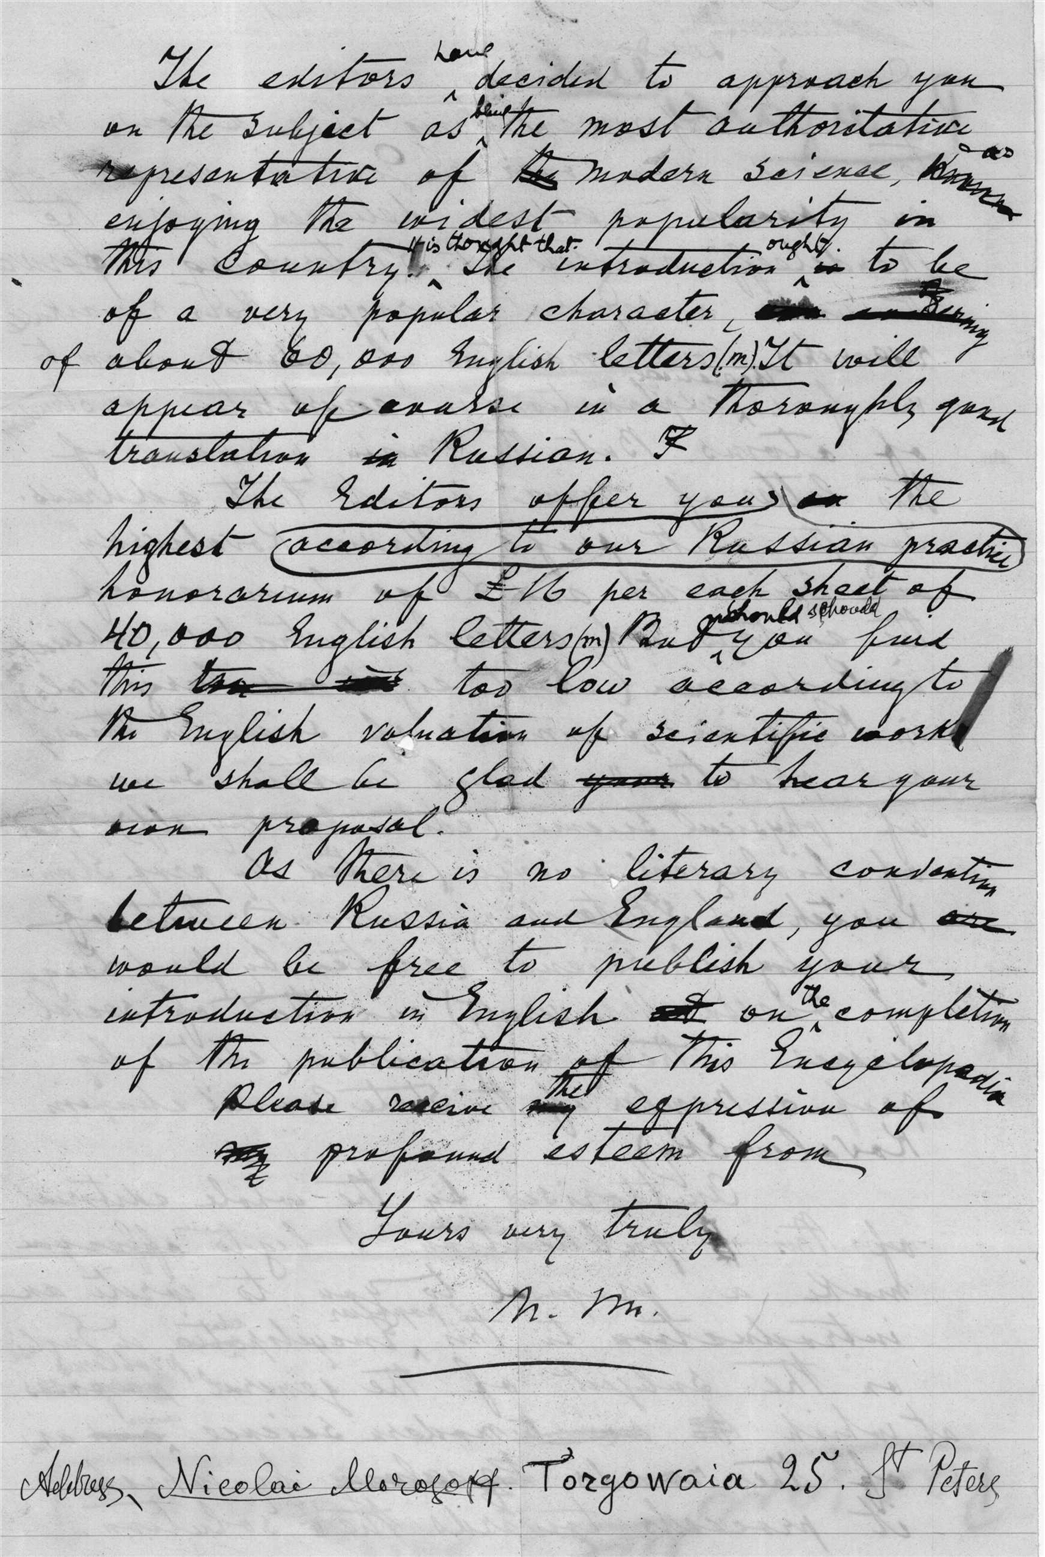 The editors have decided to approach you
on the subject as being the most authoritative
representative of the modern science, as
enjoying the widest popularity in
this country. It is thought that The introduction ought is to be
of a very popular character, being
of about 60,000 English letters (m). It will
appear of course in a thoroughly good
translation in Russian.
The Editors offer you the
highest according to our Russian practice
honorarium of £16 per each sheet of
40,000 English letters (m) But should should you find
this too low according to
the English valuation of scientific work
we shall be glad your to hear your
own proposal.
As there is no literary convention
between Russia and England, you are
would be free to publish your
introduction in English at on the completion
of the publication of this Encyclopædia
Please receive my the expression of
my profound esteem from
Yours very truly
N. M.
Address, Nicolai Morosoff. Torgowaia 25. St Peters